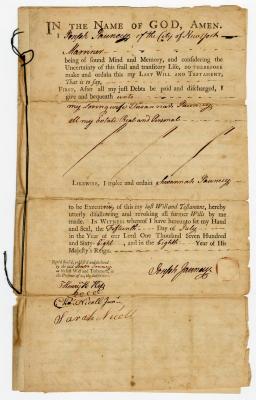 IN THE NAME OF GOD, AMEN.
I Joseph Jauncey of the City of New york
Marriner
being of sound Mind and Memory, and considering the
Uncertainty of this frail and transitory Life, DO THEREFORE
make and ordain this my LAST WILL AND TESTAMENT,
That is to say,
FIRST, After all my just Debts be paid and discharged, I
give and bequeath unto
my loving wife Susannah Jauncey
all my Estate Real and Personal
LIKEWISE, I make and ordain Susannah Jauncey
to be Execut of this my last Will and Testament, hereby
utterly disallowing and revoking all former Wills by me
made. IN WITNESS whereof I have hereunto set my Hand
and Seal, the Fifteenth Day of July
in the Year of our Lord One Thousand Seven Hundred
and Sixty-Eight, and in the Eighth Year of His
Majesty's Reign.
Signed, Sealed, published and declared
by the said Joseph Jauncey
as his last Will and Testament, in
the Presence of us, the Subscribers
Joseph Jauncey
Henry
Chas Nicoll Junr
Sarah Nicoll